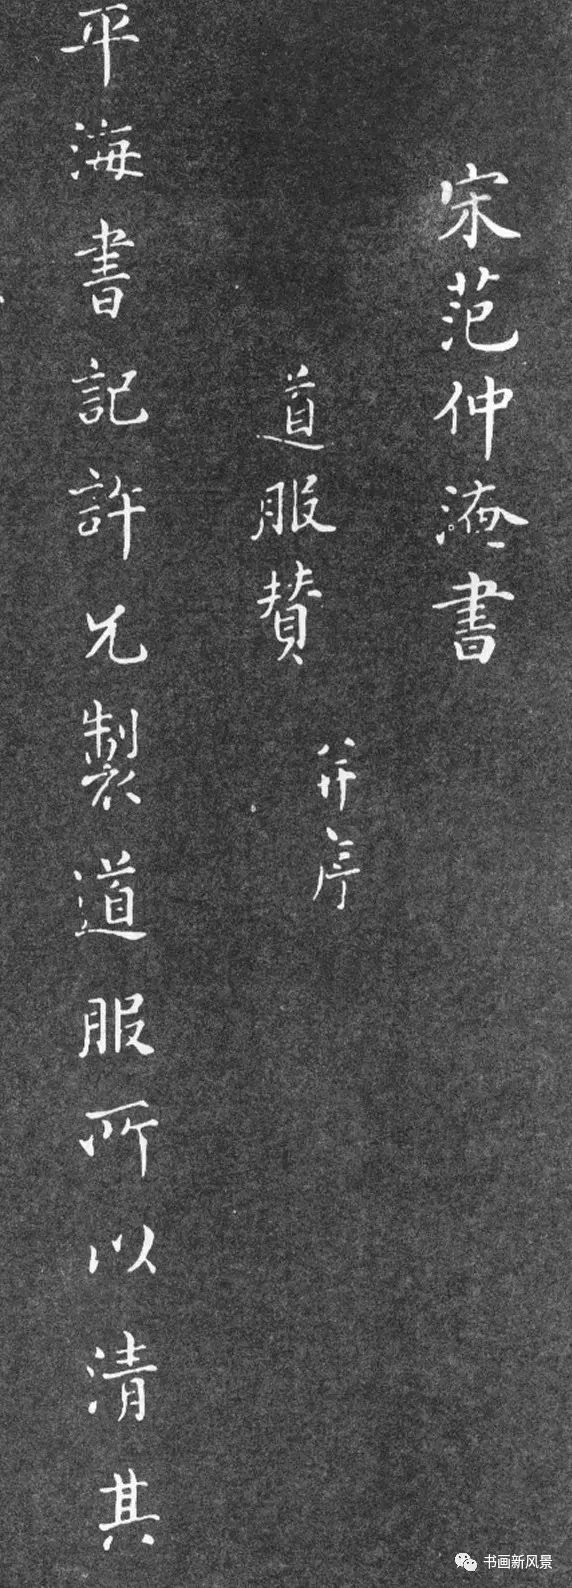 宋范仲淹書
道服贊
并序
平海書記許兄製道服所以清其
书画新风景